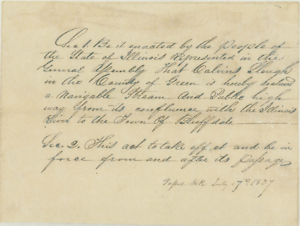 Sec 1. Be it enacted by the people of
the State of Illinois Represented in the
General Assembly That Calvins Slough
in the County of Green is hereby declared
a Navigable Stream And Public high
way from its confluence with the Illinois
River to the Town of Bluffdale
Sec. 2. This act to take effect and be in
force from and after its passage
July 17th 1837